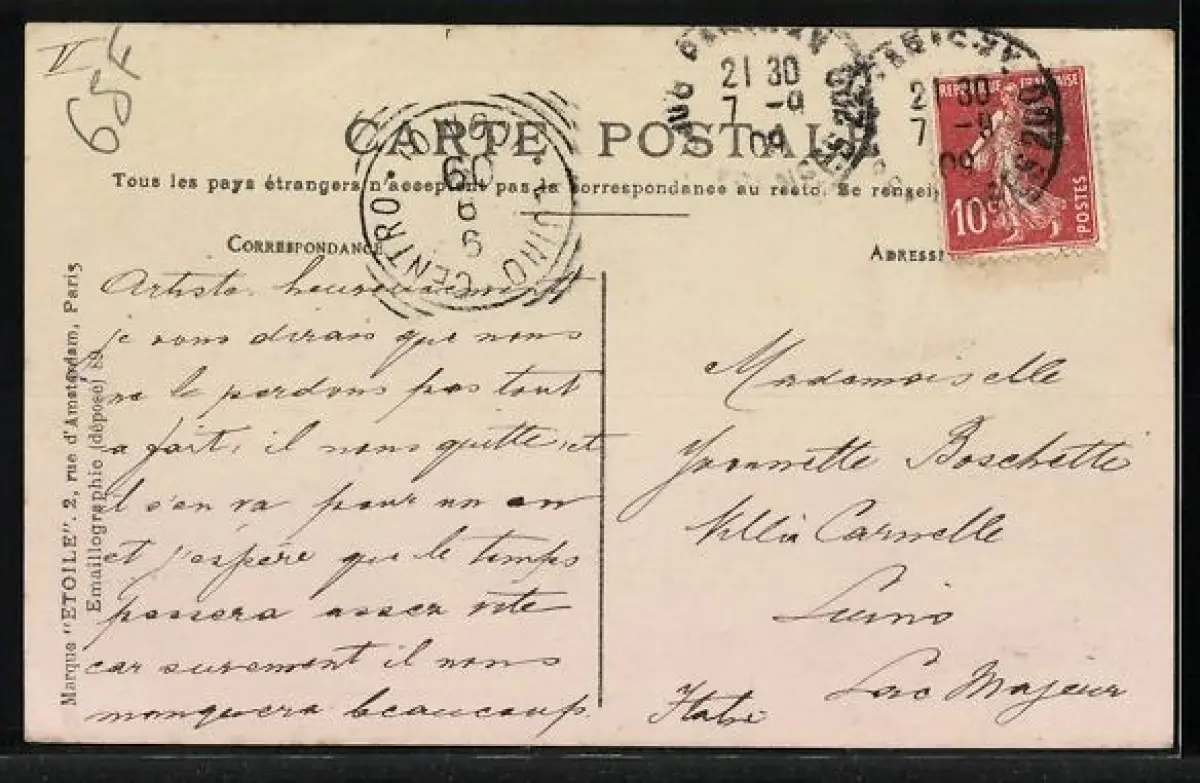 CARTE POSTALE
Tous les pays étrangers n'acceptent pas la correspondance au resto. Se rensei
CORRESPONDANCE
ADRESSE
Artiste. heureusement
je vous dirais que nous
ne le perdons pas tout
a fait, il nous quitte, et
il s'en va pour un an
et j'espère que le temps
passera assez vite
car surement il nous
manquera beaucoup.
Mademoiselle
Yvonnette Boschetti
Villa Carnelle
Luino
Lac Majeur
Italie
Marque "ETOILE". 2, rue d'Amsterdam, Paris
Emaillographie (déposé) 89
REPUBLIQUE FRANÇAISE
10c
POSTES
21 30
7 -9
09
21 30
7 -9
09
LUINO CENTRO
09